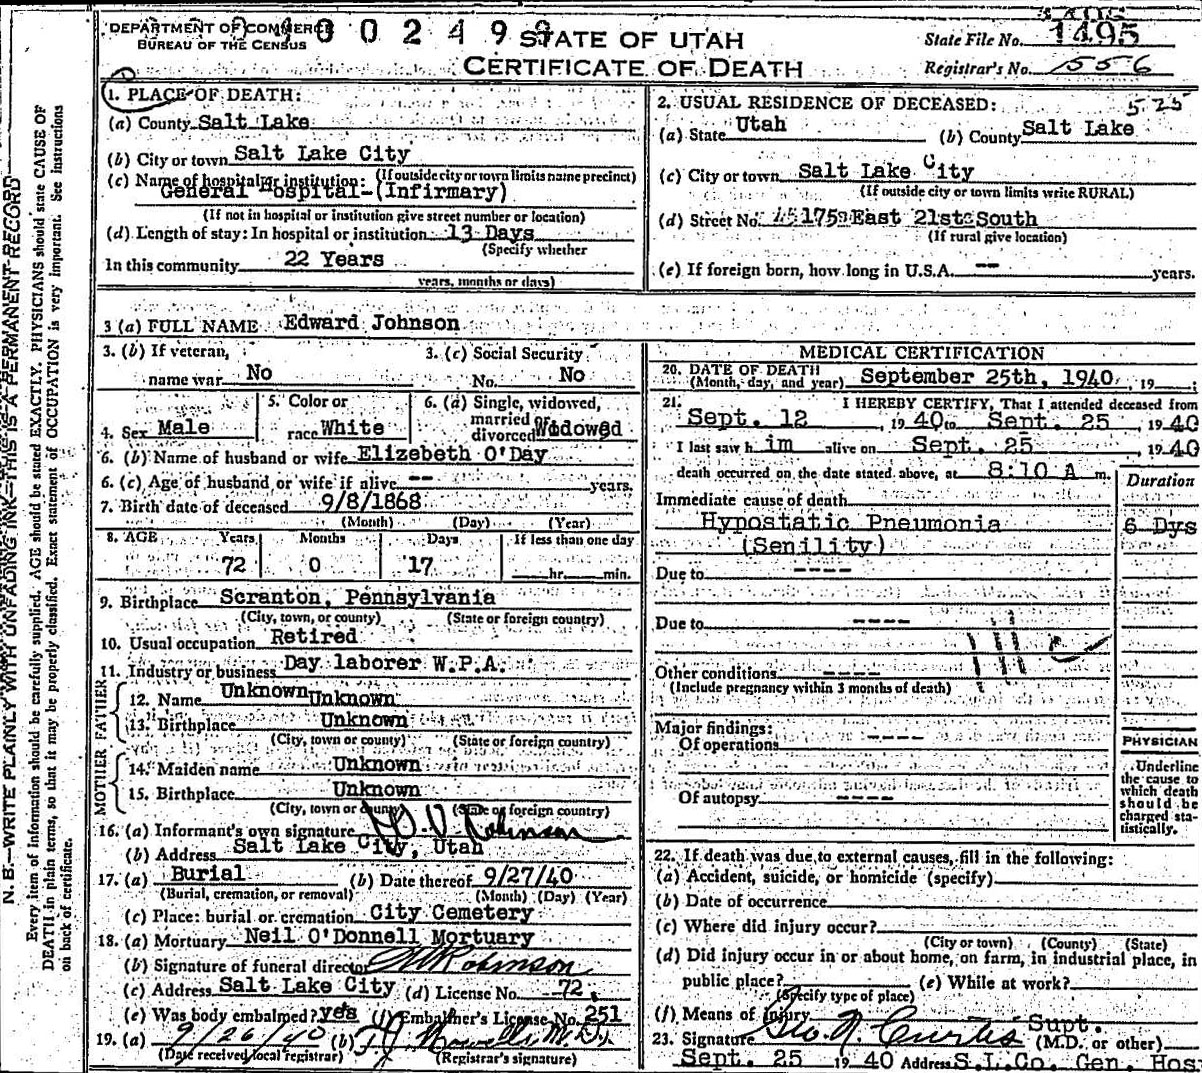 DEPARTMENT OF COMMERCE
BUREAU OF THE CENSUS
4002499
STATE OF UTAH
CERTIFICATE OF DEATH
State File No. 1495
Registrar's No. 556
1. PLACE OF DEATH:
(a) County Salt Lake
(b) City or town Salt Lake City
(If outside city or town limits name precinct)
(c) Name of hospital or institution:
General Hospital-(Infirmary)
(If not in hospital or institution give street number or location)
(d) Length of stay: In hospital or institution 13 Days
(Specify whether
In this community 22 Years
years, months or days)
2. USUAL RESIDENCE OF DECEASED: 525
(a) State Utah (b) County Salt Lake
(c) City or town Salt Lake City
(If outside city or town limits write RURAL)
(d) Street No. East 21st South
(If rural give location)
(e) If foreign born, how long in U.S.A. -- years.
3 (a) FULL NAME Edward Johnson
3. (b) If veteran, name war No
3. (c) Social Security No. No
4. Sex Male
5. Color or race White
6. (a) Single, widowed, married divorced Widowed
6. (b) Name of husband or wife Elizebeth O'Day
6. (c) Age of husband or wife if alive -- years.
7. Birth date of deceased 9/8/1868
(Month) (Day) (Year)
8. AGE Years Months Days If less than one day
72 0 17 hr. min.
9. Birthplace Scranton, Pennsylvania
(City, town, or county) (State or foreign country)
10. Usual occupation Retired
11. Industry or business Day laborer W.P.A.
FATHER
12. Name Unknown Unknown
13. Birthplace Unknown
(City, town or county) (State or foreign country)
MOTHER
14. Maiden name Unknown
15. Birthplace Unknown
(City, town or county) (State or foreign country)
16. (a) Informant's own signature
(b) Address Salt Lake City, Utah
17. (a) Burial (b) Date thereof 9/27/40
(Burial, cremation, or removal) (Month) (Day) (Year)
(c) Place: burial or cremation City Cemetery
18. (a) Mortuary Neil O'Donnell Mortuary
(b) Signature of funeral director
(c) Address Salt Lake City (d) License No. 72
(e) Was body embalmed? yes (f) Embalmer's License No. 251
19. (a) 9/26/40 (b) M.D.
(Date received local registrar) (Registrar's signature)
MEDICAL CERTIFICATION
20. DATE OF DEATH
(Month, day, and year) September 25th, 1940, 19
21. I HEREBY CERTIFY, That I attended deceased from
Sept. 12, 1940 to Sept. 25, 1940
I last saw h im alive on Sept. 25 1940
death occurred on the date stated above, at 8:10 A m.
Duration
Immediate cause of death
Hypostatic Pneumonia 6 Dys
(Senility)
Due to ----
Due to ----
Other conditions ----
(Include pregnancy within 3 months of death)
Major findings:
Of operations ----
Of autopsy ----
PHYSICIAN
Underline
the cause to
which death
should be
charged sta-
tistically.
22. If death was due to external causes, fill in the following:
(a) Accident, suicide, or homicide (specify)
(b) Date of occurrence
(c) Where did injury occur?
(City or town) (County) (State)
(d) Did injury occur in or about home, on farm, in industrial place, in
public place? (e) While at work?
(Specify type of place)
(f) Means of Injury
23. Signature Geo. N. Curtis Supt. (M.D. or other)
Sept. 25 1940 Address S.L.Co. Gen. Hos
N. B.—WRITE PLAINLY WITH UNFADING INK—THIS IS A PERMANENT RECORD
Every item of Information should be carefully supplied. AGE should be stated EXACTLY. PHYSICIANS should state CAUSE OF
DEATH in plain terms, so that it may be properly classified. Exact statement of OCCUPATION is very important. See instructions
on back of certificate.